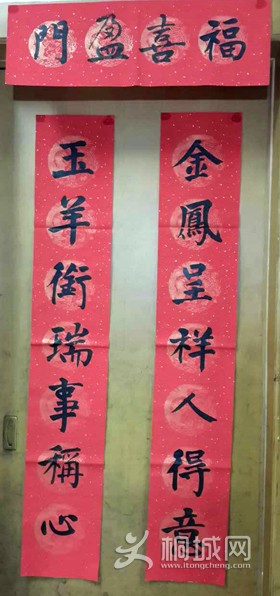 福喜盈門
金鳳呈祥人得意
玉羊銜瑞事稱心
桐城网
www.itongcheng.com